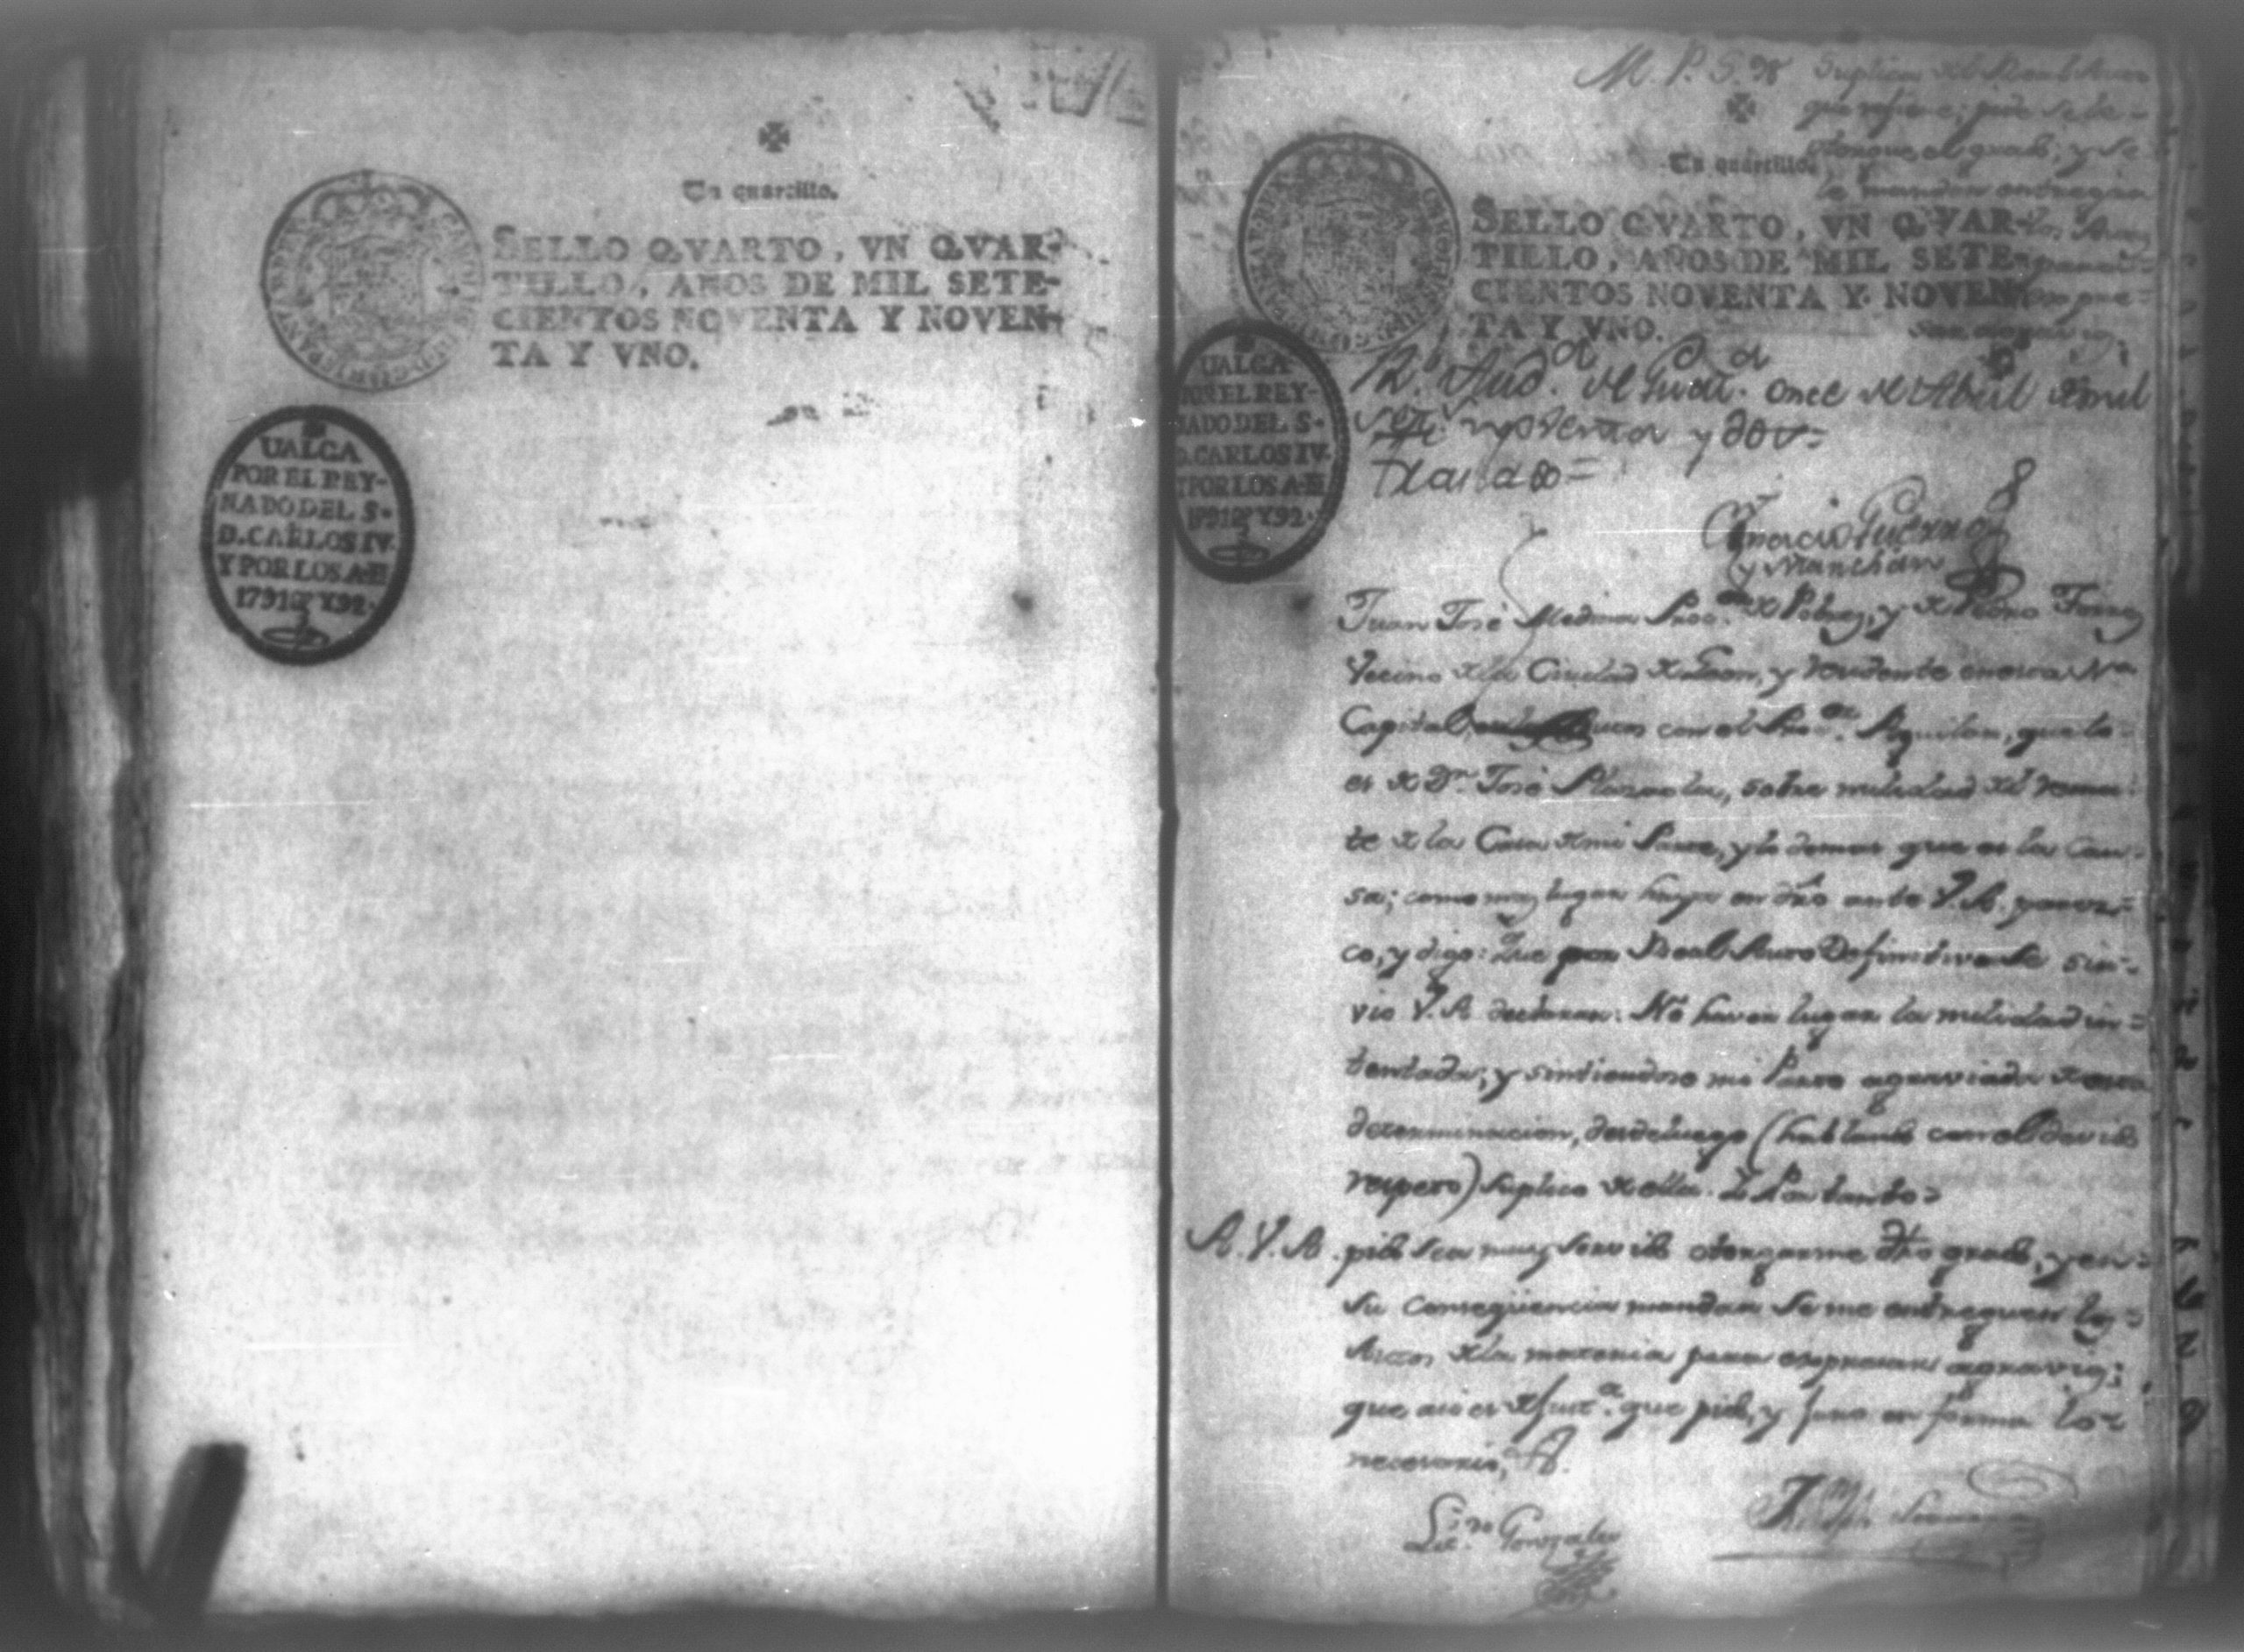 Un quartillo.
SELLO QVARTO, VN QVAR-
TILLO, AÑOS DE MIL SETE-
CIENTOS NOVENTA Y NOVEN-
TA Y VNO.
UALGA
POR EL REY-
NADO DEL S.
D. CARLOS IV.
Y POR LOS A. D
1791 Y 92.
M. P. S. Suplica del Real Auto
que refiere; pide se le
otorgue el grado; y se
le manden entregar
los Autos
para
expre-
sar agravios
Un quartillo.
SELLO QVARTO, VN QVAR-
TILLO, AÑOS DE MIL SETE-
CIENTOS NOVENTA Y NOVEN-
TA Y VNO.
UALGA
POR EL REY-
NADO DEL S.
D. CARLOS IV.
Y POR LOS A. D
1791 Y 92.
Rl. Audª. de Guadª. once de Abril de mil
settˢ noventa y dos=
Traslado=
Guerra
y Manchan
Juan José Medina Procor. de Pobres, y de Pedro
Vecino de la Ciudad de Leon, y residente en esta Nª
Capital con el Procor. Aguilar, que lo
es de Dn. José Plazaola, sobre nulidad del rema-
te de la Casa de mi Parte, y lo demas que es la Cau-
sa; como mas lugar haya en dro ante V. A. parez-
co, y digo: Que por Real Auto Definitivo se sir-
vio V. A. declarar: No haver lugar la nulidad in-
tentada; y sintiendose mi Parte agraviada de esta
determinacion, desde luego (hablando con el devido
respeto) suplico de ella. Y Por tanto=
A. V. A. pido sea muy servido otorgarme dho grado, y en
su conseqüencia mandar se me entreguen los
Autos de la materia para expresar agravios;
que asi es de Justª. que pido, y juro en forma lo
necesario, &.
Licdo. Gonzales